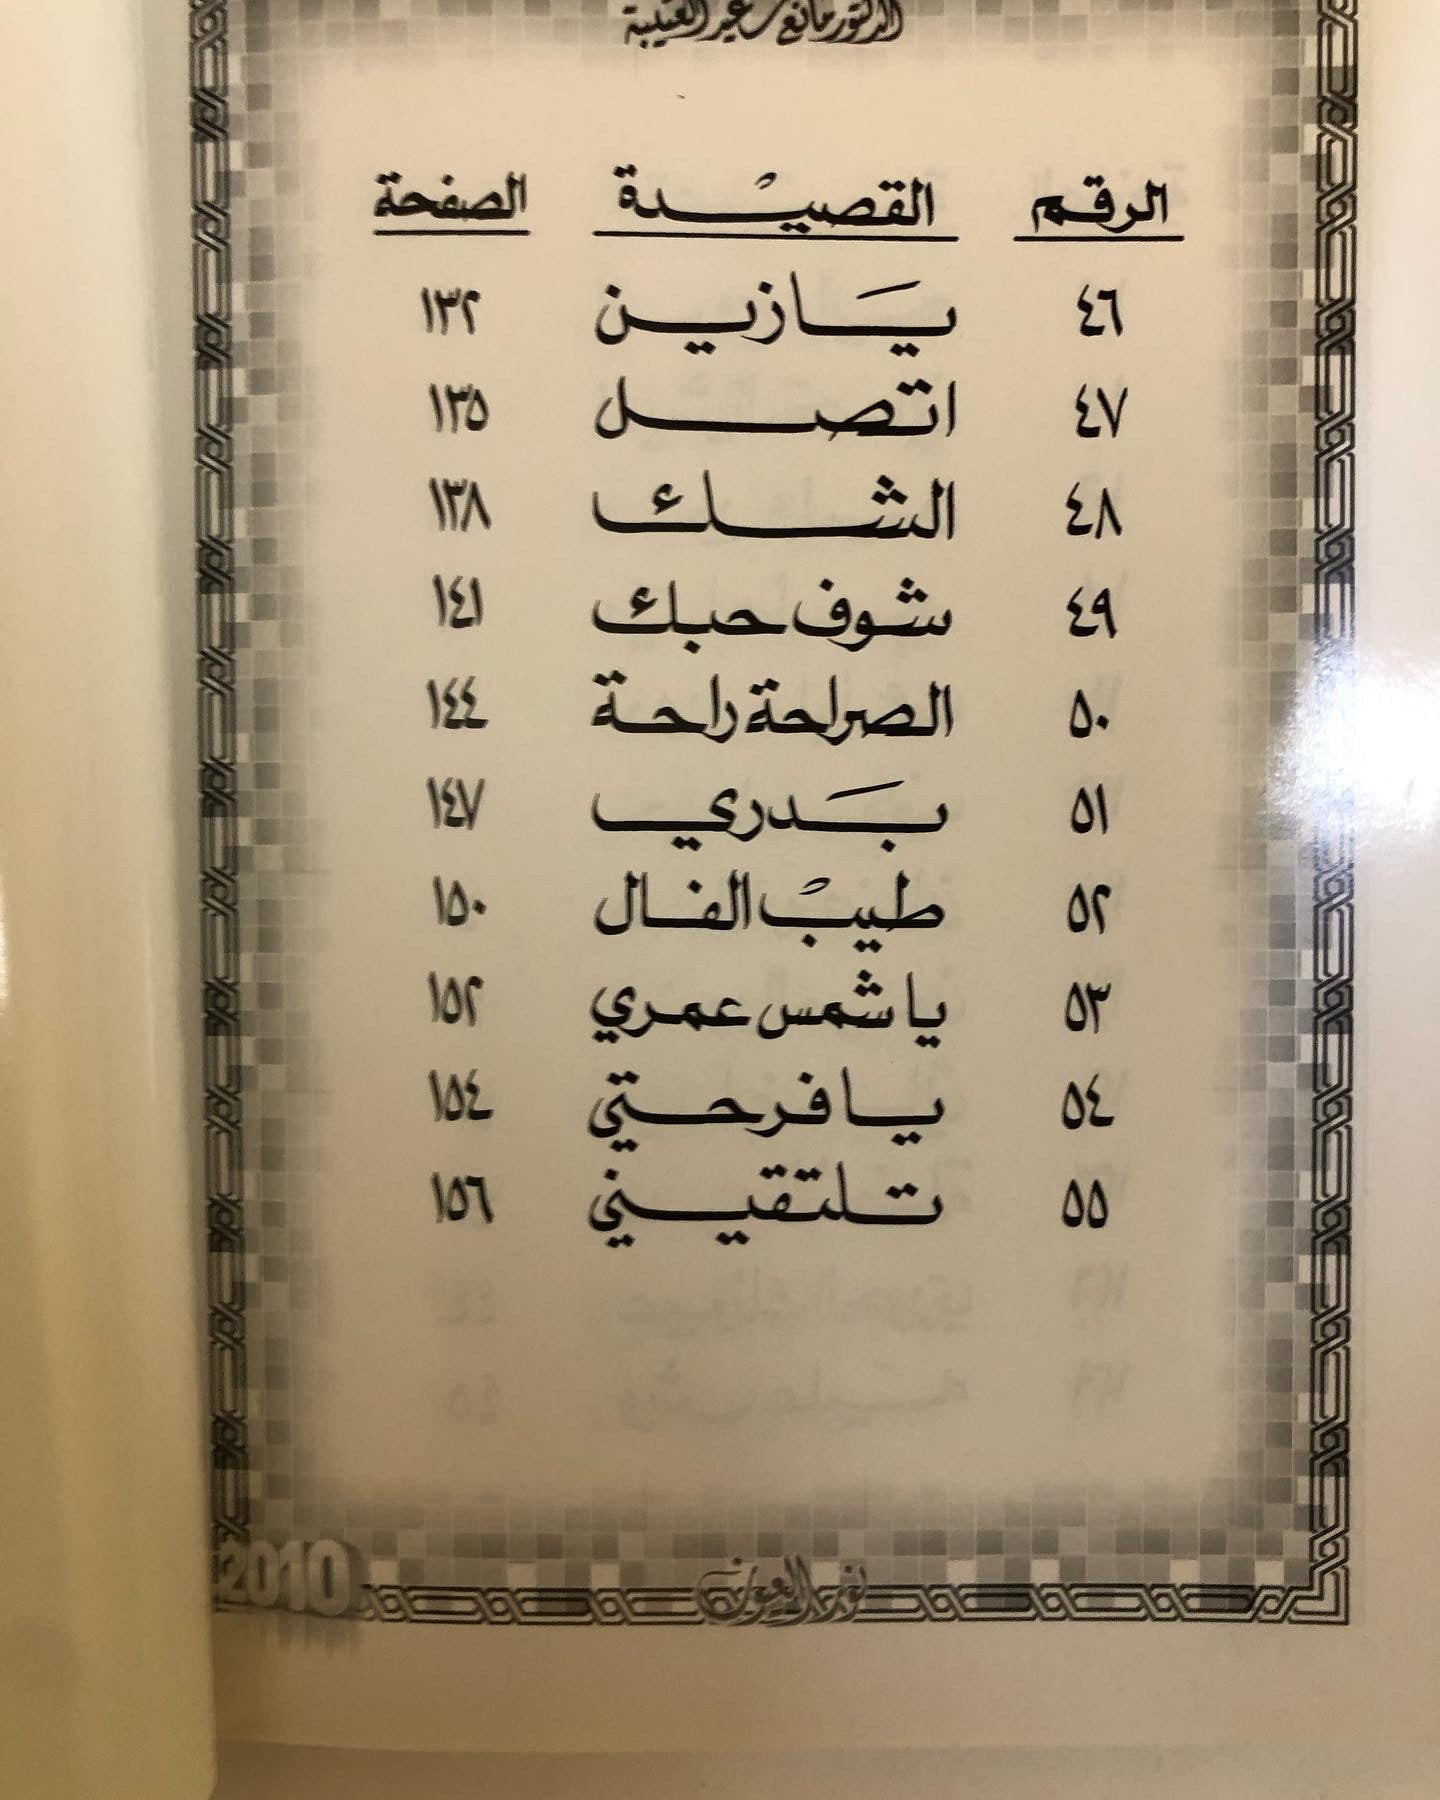 الدكتور مانع سعيد العتيبة
الرقم القصيْدة الصفحة
٤٦ يَازين ١٣٢
٤٧ اتصل ١٣٥
٤٨ الشك ١٣٨
٤٩ شوف حبك ١٤١
٥٠ الصراحة راحة ١٤٤
٥١ بَدري ١٤٧
٥٢ طيبْ الفال ١٥٠
٥٣ يا شمس عمري ١٥٢
٥٤ يا فرحتي ١٥٤
٥٥ تلتقيني ١٥٦
نور العيون
2010